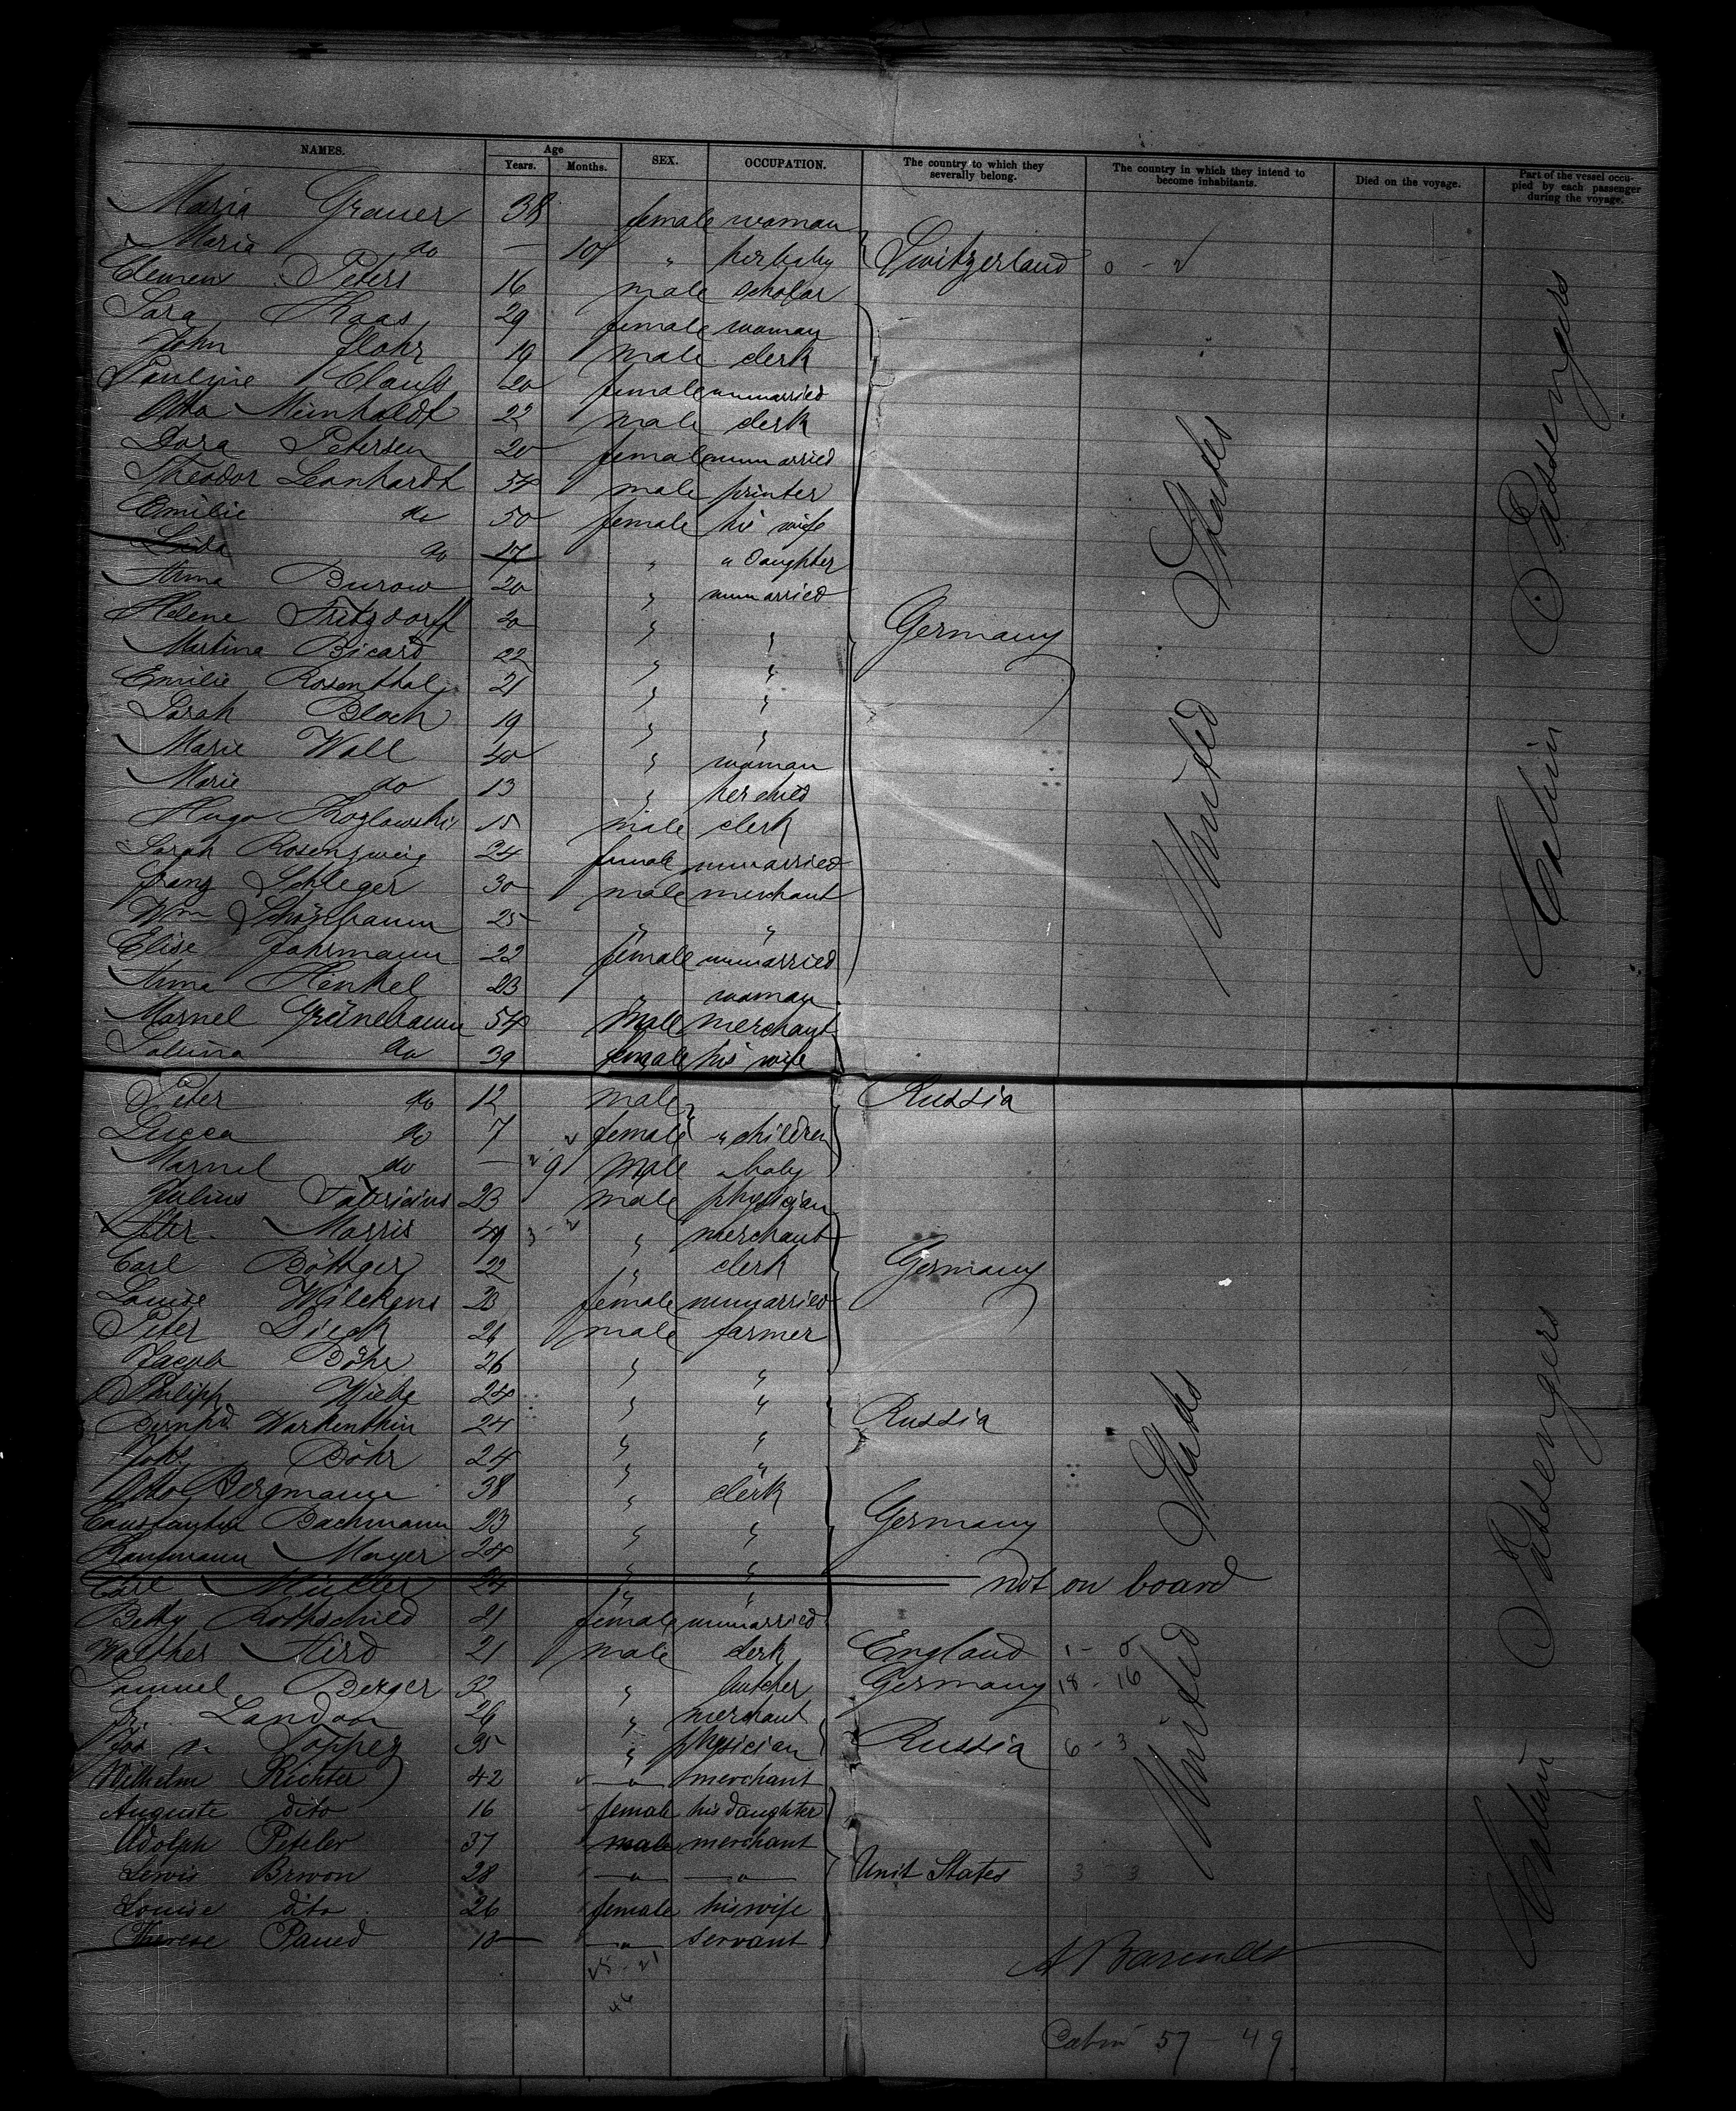 NAMES. Age Years. Months. SEX. OCCUPATION. The country to which they severally belong. The country in which they intend to become inhabitants. Died on the voyage. Part of the vessel occupied by each passenger during the voyage.
Maria Grauer 38 female woman
Maria do — 10 " her baby Switzerland 0 - 2
Clemens Peters 16 male scholar
Sara Haas 29 female woman
John Flohr 19 male clerk
Paulyne Clauss 20 female unmarried
Otto Meinholdt 22 male clerk
Dora Petersen 20 female unmarried
Theodor Leonhardt 54 male printer
Emilie do 50 female his wife
Lida do 17 " " daughter
Anna Burow 20 " unmarried
Helene Fritzdorff 20 " " Germany
Martina Bicard 22 " "
Emilie Rosenthal 21 " "
Sarah Bloch 19 " "
Marie Wall 40 " woman
Marie do 13 " her child
Hugo Kozlowski 15 male clerk
Sarah Rosenzweig 24 female unmarried
Franz Schleger 30 male merchant
Wm Schönbaum 25 " "
Elise Fahrmann 22 female unmarried
Anna Henkel 23 " woman
Marnel Grünebaum 54 male merchant
do 39 female his wife
United States
Cabin Passengers
Peter do 12 male Russia
Lucca do 7 female " children
Marnel do — 9 male " baby
Julius Fabricius 23 male physician
Morris 49 3 - 2 " merchant
Carl Böttger 22 " clerk Germany
Louise Wilckens 23 female unmarried
Peter Dieck 21 male farmer
Jacob Böhr 26 " "
Philipp Wiebe 24 " "
Bernhd Warkenthin 24 " " Russia
Joh. Böhr 24 " "
Otto Bergmann 38 " clerk
Constantin Bachmann 23 " " Germany
Kaufmann Mayer 24 " "
Carl Müller 24 " " not on board
Betty Rothschild 21 female unmarried
Walther Aird 21 male clerk England 1 - 0
Samuel Berger 32 " butcher Germany 18 - 16
Landon 26 " merchant
35 " physician Russia 6 - 3
Wilhelm Richter 42 — " — merchant
Auguste dito 16 female his daughter
Adolph Peteler 37 male merchant
Lewis Brwon 28 — " — — " — Unit States 3 - 3
Louise dito 26 female his wife
Therese Paued 10 — " — servant
25 - 21
46
United States
Cabin Passengers
Cabin 57 - 49